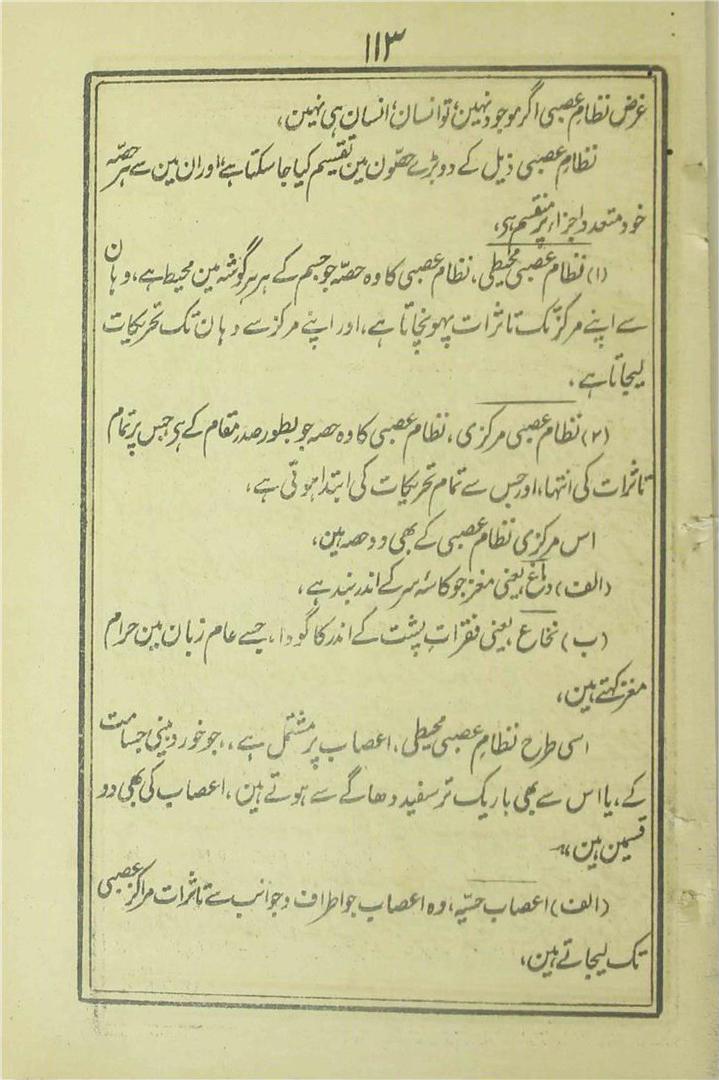 ۱۱۳
غرض نظامِ عصبی اگر موجود نہین، تو انسان، انسان ہی نہین،
نظامِ عصبی ذیل کے دو بڑے حصّون مین تقسیم کیا جا سکتا ہے، اور ان مین سے ہر حصّہ
خود متعدد اجزاء پر منقسم ہی،
(۱) نظامِ عصبی محیطی، نظام عصبی کا وہ حصّہ جو جسم کے ہر ہر گوشہ مین محیط ہے، وہان
سے اپنے مرکز تک تاثرات پہونچاتا ہے، اور اپنے مرکز سے وہان تک تحریکات
لیجاتا ہے،
(۲) نظام عصبی مرکزی، نظام عصبی کا وہ حصہ جو بطور صدر مقام کے ہی جس پر تمام
تاثرات کی انتہا، اور جس سے تمام تحریکات کی ابتدا ہوتی ہے،
اس مرکزی نظام عصبی کے بھی دو حصہ ہین،
(الف) دماغ، یعنی مغز جو کاسۂ سر کے اندر بند ہے،
(ب) نخاع، یعنی فقراتِ پشت کے اندر کا گودا، جسے عام زبان مین حرام
مغز کہتے ہین،
اسی طرح نظامِ عصبی محیطی، اعصاب پر مشتمل ہے، جو خوردبینی جسامت
کے، یا اس سے بھی باریک تر سفید دھاگے سے ہوتے ہین، اعصاب کی بھی دو
قسمین ہین،
(الف) اعصاب حسیّہ، وہ اعصاب جو اطراف و جوانب سے تاثرات مراکز عصبی
تک لیجاتے ہین،